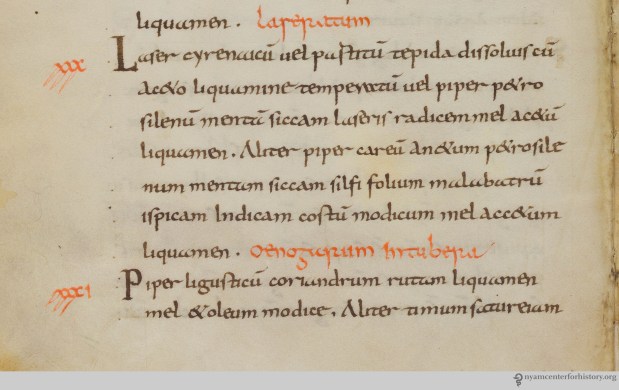 liquamen . laseratum
xxx Laser cyrenaicū uel pastitū tepida dissoluis cū
ac&o liquamine temperatū uel piper p&ro
silenū mentā siccam laseris radicem mel ac&ū
liquamen . Aliter piper careū an&um p&rosile
num mentam siccam silfi folium malabatrū
ispicam Indicam costū modicum mel acc&um
liquamen . oenogarum In tubera
xxxi Piper ligusticū coriandrum rutam liquamen
mel &oleum modice . Aliter timum satureiam
nyamcenterforhistory.org